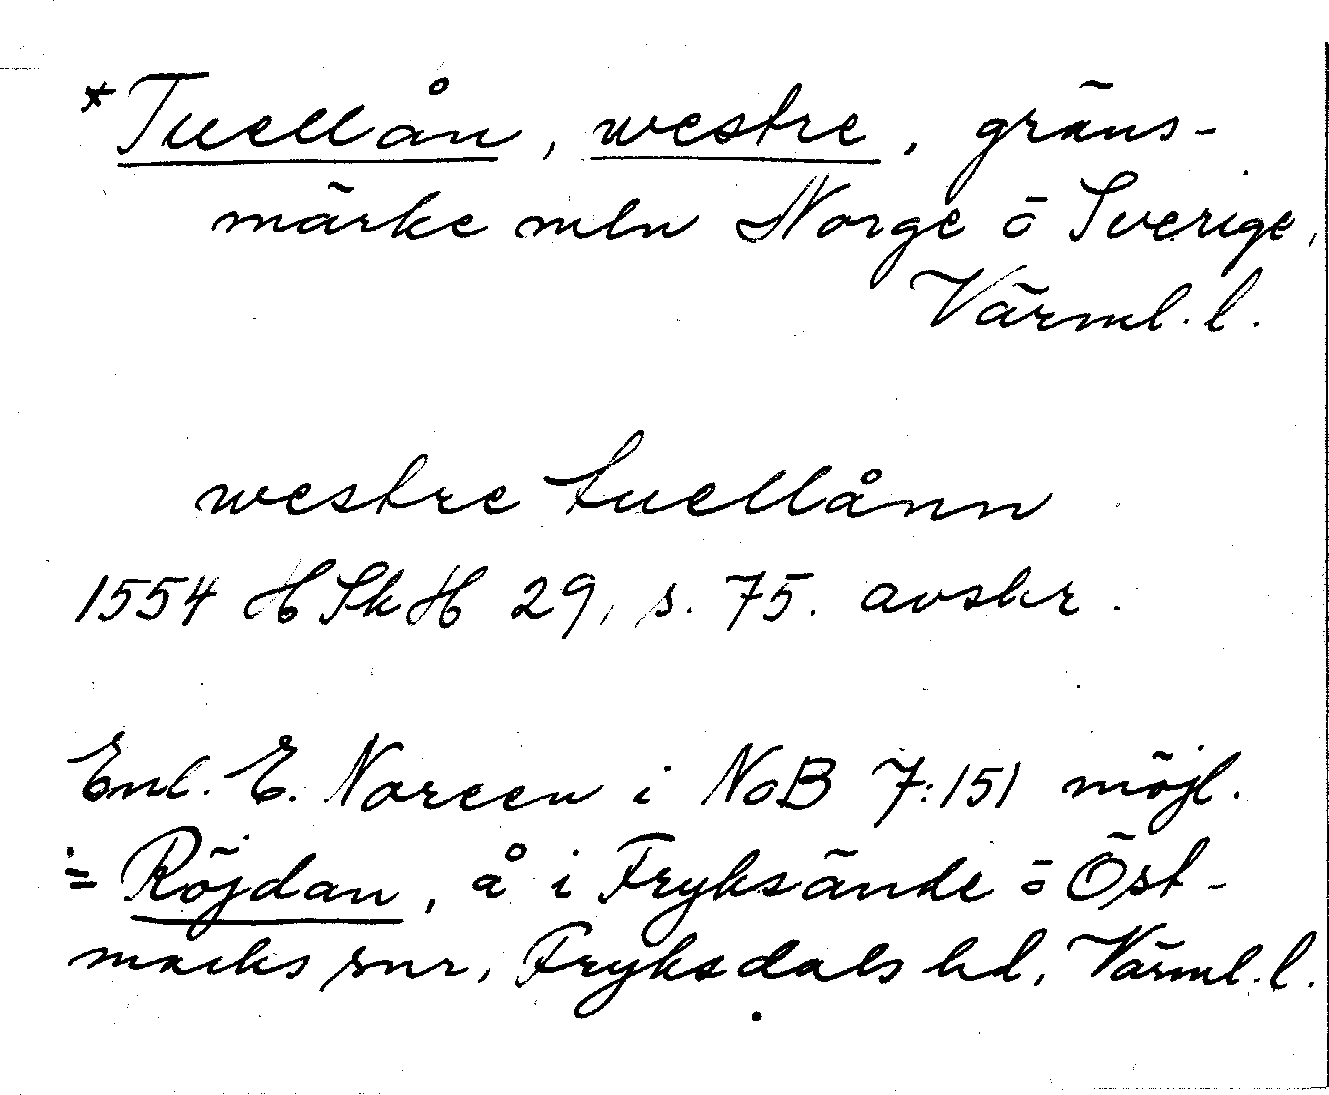 *Tuellån, westre, gräns-
märke mln Norge o Sverige,
Värml. l.
westre tuellånn
1554 HSkH 29, s. 75. avskr.
Enl. E. Noreen i NoB 7:151 möjl.
= Röjdan, å i Fryksände o Öst-
marks snr, Fryksdals hd, Värml. l.